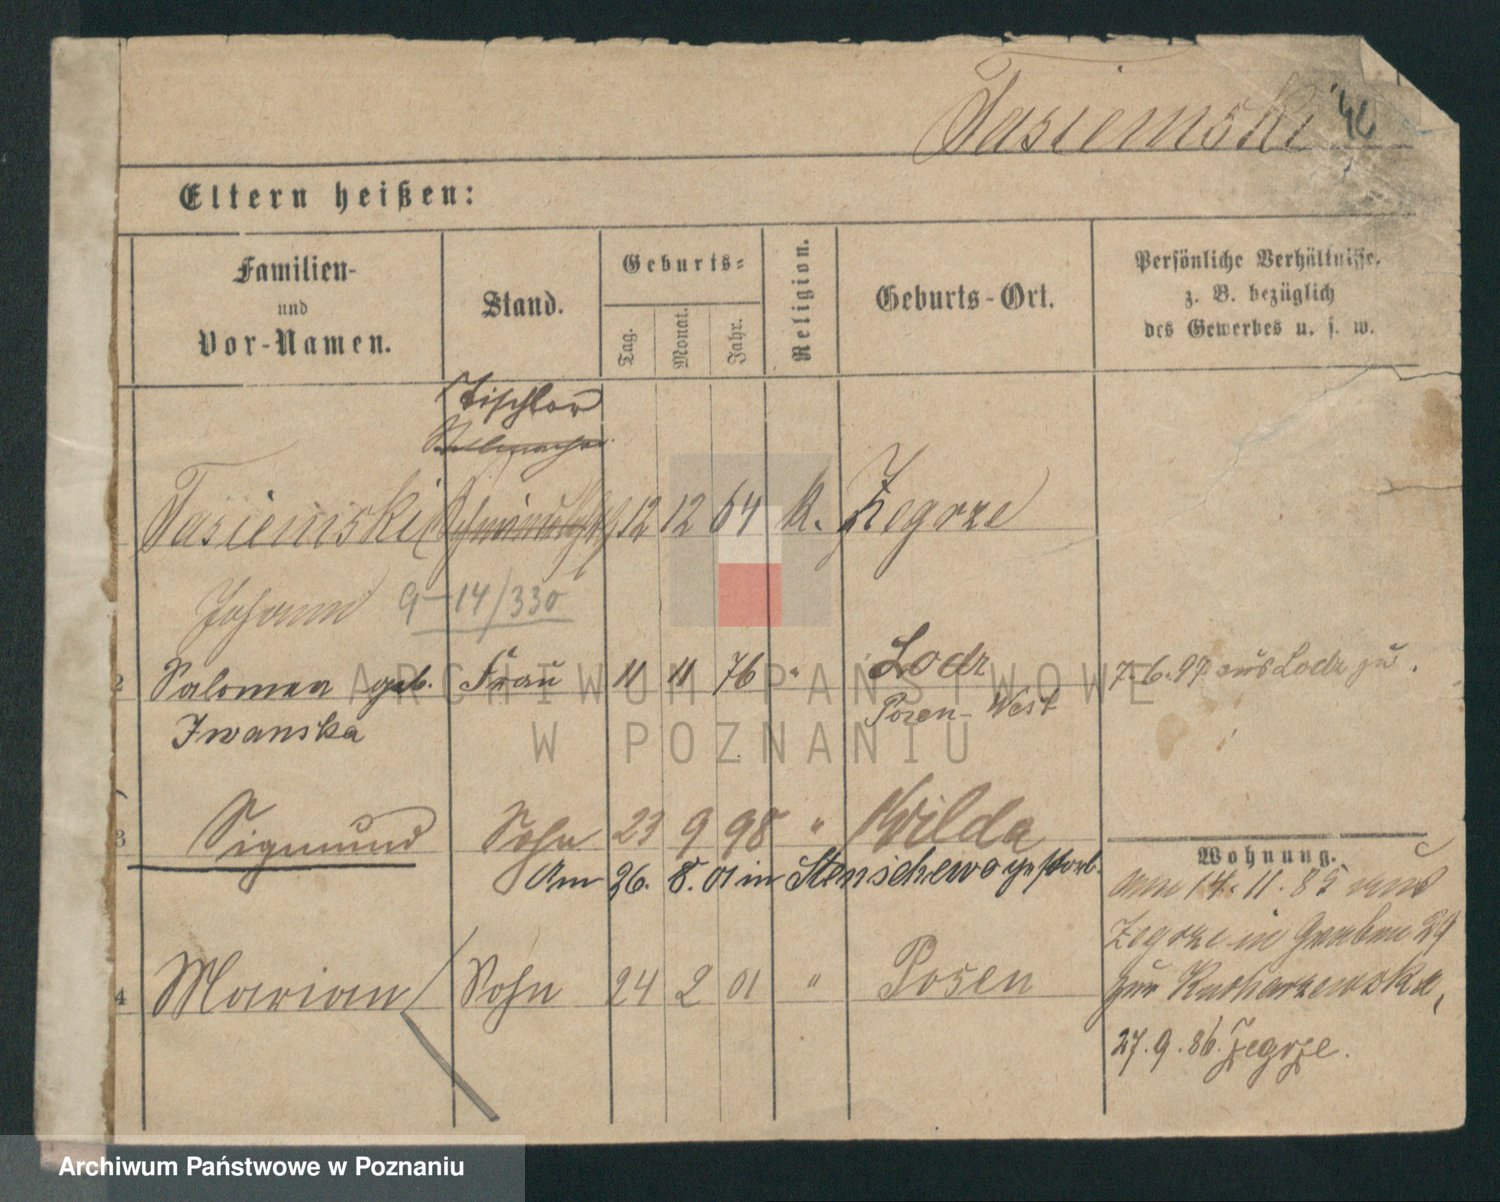 Tasiemski
Eltern heißen:
Familien-
und
Vor-Namen.
Stand.
Geburts-
Tag.
Monat.
Jahr.
Religion.
Geburts-Ort.
Persönliche Verhältnisse,
z. B. bezüglich
des Gewerbes u. s. w.
Tischler
Stellmacher
Tasiemski 12 12 64 K. Zegrze
Johann 9-14/330
2 Salomea geb. Frau 11 11 76 " Lodz 7.6.97 aus Lodz zu.
Iwanska Posen-West
3 Sigmund Sohn 23 9 98 " Wilda
Am 26. 8. 01 in Stenschewo gestorb.
Wohnung.
am 14.11.85 aus
Zegrze in Graben 29
zur Kucharzewska,
4 Marian Sohn 24 2 01 " Posen
27.9.86. Zegrze.
ARCHIWUM PAŃSTWOWE
W POZNANIU
Archiwum Państwowe w Poznaniu